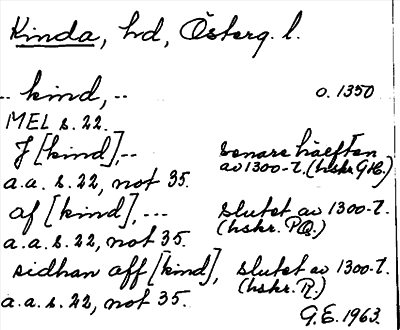 Kinda, hd, Österg. l.
-- kind, -- o. 1350
MEL s. 22.
J [kind],-- senare hälften
av 1300-t. (hskr G H.)
a.a. s. 22, not 35.
af [kind], --- slutet av 1300-t.
(hskr. P Q.)
a.a. s. 22, not 35.
sidhan aff [kind], slutet av 1300-t.
(hskr. R.)
a.a. s. 22, not 35.
G.E. 1963.